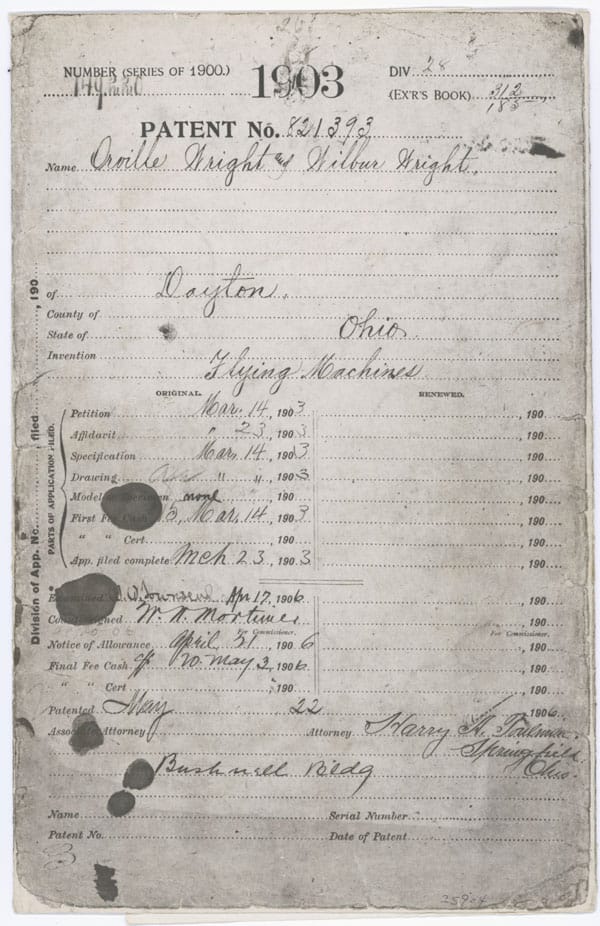 NUMBER (SERIES OF 1900.) 1903 DIV 28
(EX'R'S BOOK) 312
183
PATENT No. 821393
Name Orville Wright and Wilbur Wright.
of Dayton.
County of
State of Ohio.
Invention Flying Machines
ORIGINAL. RENEWED.
Petition Mar. 14, 1903 , 190
Affidavit " 23, 1903 , 190
Specification Mar, 14, 1903 , 190
Drawing " " , 1903 , 190
Model or Specimen none , 190 , 190
First Fee Cash Mar, 14, 1903 , 190
" " Cert. , 190 , 190
App. filed complete Mch 23, 1903 , 190
PARTS OF APPLICATION FILED.
Division of App. No. , filed , 190
Examined Townsend Apr 17, 1906 , 190
signed W. N. Mortimer , 190
For Commissioner. For Commissioner.
Notice of Allowance April 21, 1906 , 190
Final Fee Cash 20. May 2, 1906 , 190
" " Cert , 190 , 190
Patented May 22 , 1906
Associate Attorney Attorney Harry A. Toulmin.
Springfield
Ohio.
Bushnell Bldg
Name Serial Number
Patent No. Date of Patent
3